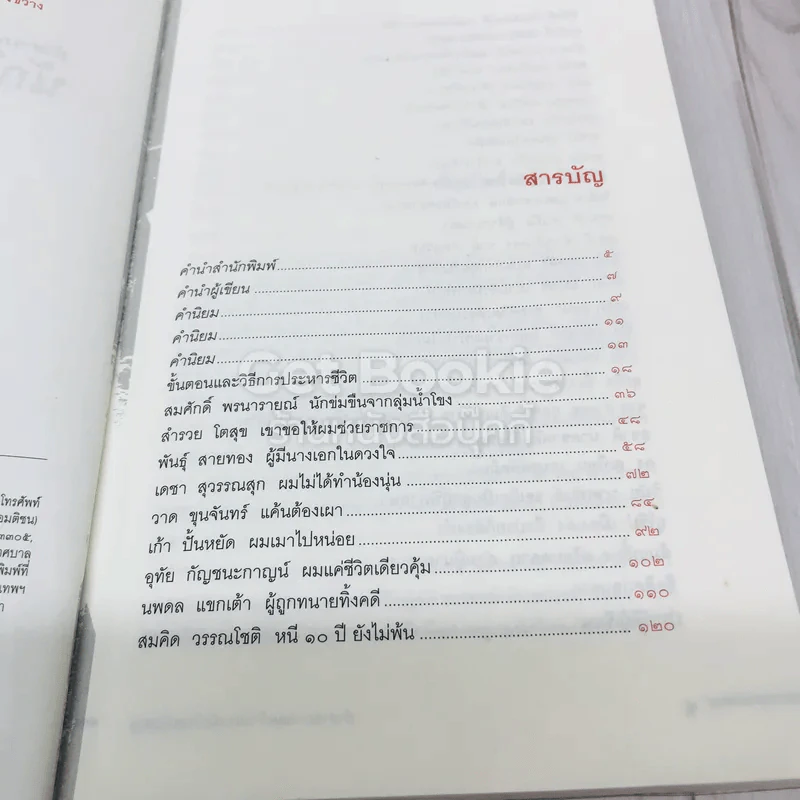 สารบัญ
คำนำสำนักพิมพ์ ๕
คำนำผู้เขียน ๗
คำนิยม ๙
คำนิยม ๑๑
คำนิยม ๑๓
ขั้นตอนและวิธีการประหารชีวิต ๑๘
สมศักดิ์ พรนารายณ์ นักข่มขืนจากลุ่มน้ำโขง ๓๖
สำรวย โตสุข เขาขอให้ผมช่วยราชการ ๔๘
พันธุ์ สายทอง ผู้มีนางเอกในดวงใจ ๕๘
เดชา สุวรรณสุก ผมไม่ได้ทำน้องนุ่น ๗๒
วาด ขุนจันทร์ แค้นต้องเผา ๘๔
เก้า ปั้นหยัด ผมเมาไปหน่อย ๙๒
อุทัย กัญชนะกาญน์ ผมแค่ชีวิตเดียวคุ้ม ๑๐๒
นพดล แขกเต้า ผู้ถูกทนายทิ้งคดี ๑๑๐
สมคิด วรรณโชติ หนี ๑๐ ปี ยังไม่พ้น ๑๒๐
Get Bookie
ร้านหนังสือบุ๊คกี้
โทรศัพท์
อมติชน)
๓๓๐๕,
าศบาล
พิมพ์ที่
เทพฯ